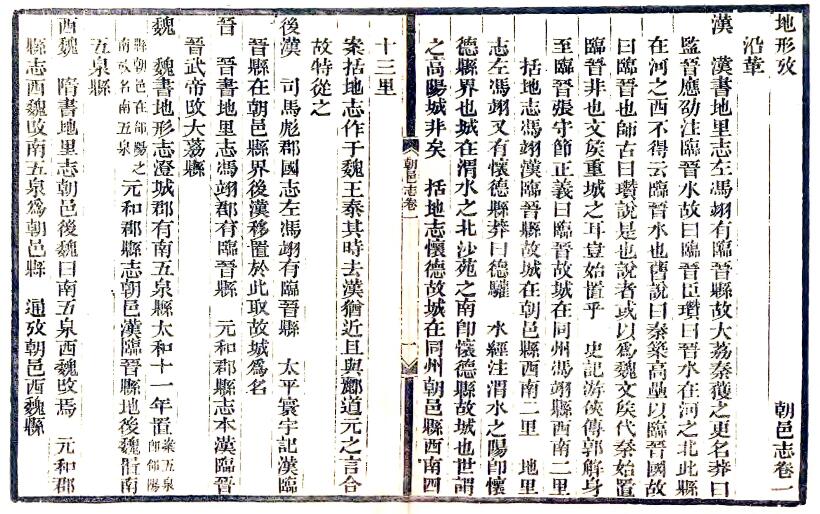 地形攷　朝邑志卷一
沿革
漢　漢書地里志左馮翊有臨晉縣故大荔秦獲之更名莽曰
監晉應劭注臨晉水故曰臨晉臣瓚曰晉水在河之北此縣
在河之西不得云臨晉水也舊說曰秦築高壘以臨晉國故
曰臨晉也師古曰瓚說是也說者或以爲魏文矦代秦始置
臨晉非也文矦重城之耳豈始置乎　史記游俠傳郭解身
至臨晉張守節正義曰臨晉故城在同州馮翊縣西南二里
括地志馮翊漢臨晉縣故城在朝邑縣西南二里　地里
志左馮翊又有懷德縣莽曰德驩　水經注渭水之陽卽懷
德縣界也城在渭水之北沙苑之南卽懷德縣故城也世謂
之高陽城非矣　括地志懷德故城在同州朝邑縣西南四
朝邑志卷一
一
十三里
案括地志作于魏王泰其時去漢猶近且與酈道元之言合
故特從之
後漢　司馬彪郡國志左馮翊有臨晉縣　太平寰宇記漢臨
晉縣在朝邑縣界後漢移置於此取故城爲名
晉　晉書地里志馮翊郡有臨晉縣　元和郡縣志本漢臨晉
晉武帝攺大荔縣
魏　魏書地形志澄城郡有南五泉縣太和十一年置案五泉卽郃陽
縣朝邑在郃陽之南攺名南五泉　元和郡縣志朝邑漢臨晉縣地後魏置南
五泉縣
西魏　隋書地里志朝邑後魏曰南五泉西魏攺焉　元和郡
縣志西魏攺南五泉爲朝邑縣　通攷朝邑西魏縣